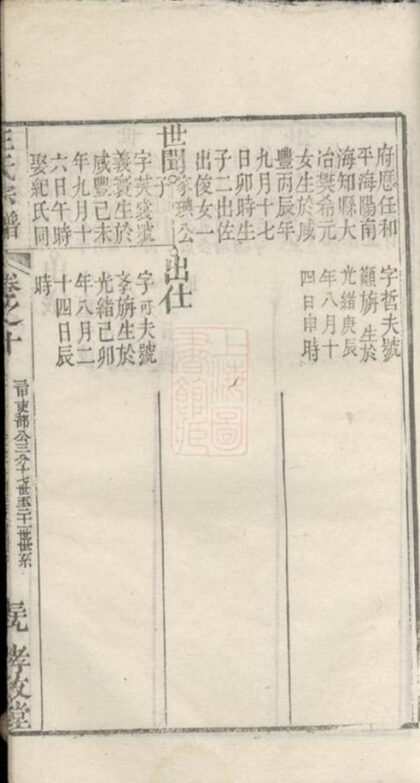 府應任和
平海陽南
海知縣大
冶樊希元
女生於咸
豐丙辰年
九月十七
日卯時生
子二出佐
出俊女一
字哲夫號
顯旃生於
光緒庚辰
年八月十
四日申時
世聞
家璵公
子
字英裳號
義賓生於
咸豐己未
年九月十
六日午時
娶紀氏同
出仕
字可夫號
孝旃生於
光緒己卯
年八月二
十四日辰
時
氏宗譜
卷之十
孝友堂
上海圖
書館藏